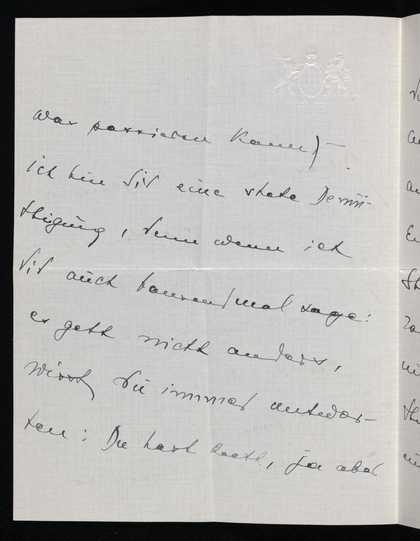 was passieren kann) –
ich bin Dir eine stete Demü-
thigung, denn wenn ich
Dir auch tausendmal sage:
es geht nicht anders,
wirst Du immer antwor-
ten: Du hast Recht, ja aber